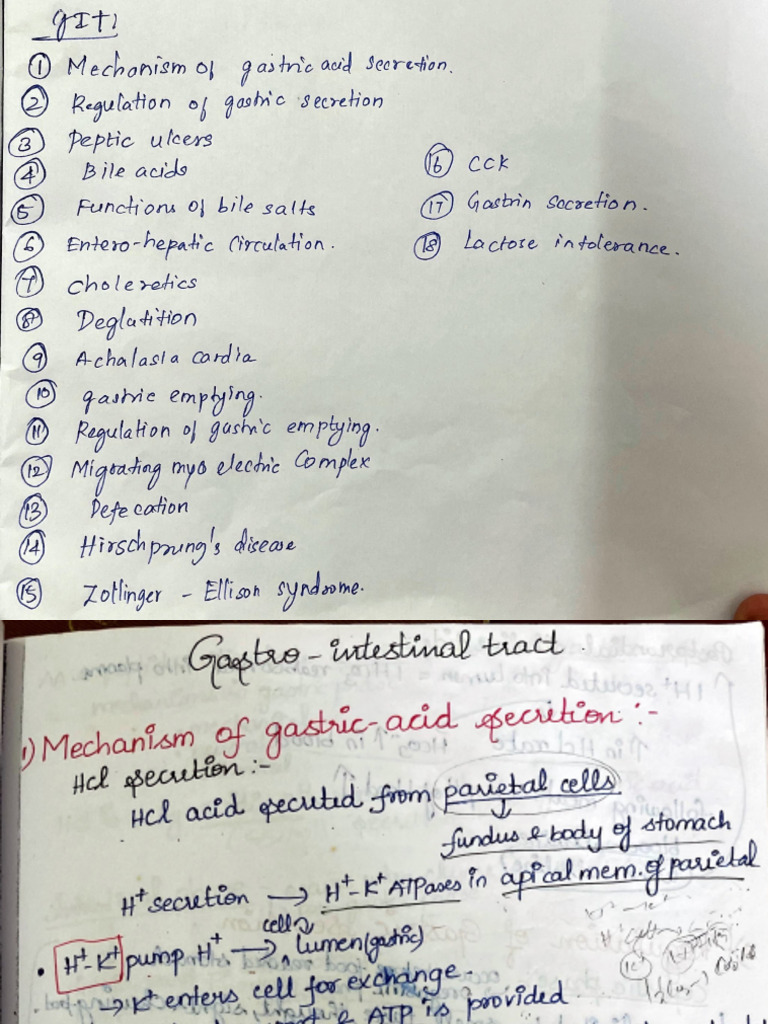 GIT:
① Mechanism of gastric acid secretion.
② Regulation of gastric secretion
③ Peptic ulcers
④ Bile acids
⑤ Functions of bile salts
⑥ Entero-hepatic Circulation.
⑦ Choleretics
⑧ Deglutition
⑨ Achalasia cardia
⑩ gastric emptying.
⑪ Regulation of gastric emptying.
⑫ Migrating myo electric Complex
⑬ Defecation
⑭ Hirschprung's disease
⑮ Zollinger - Ellison syndrome.
⑯ CCK
⑰ Gastrin Secretion.
⑱ Lactose intolerance.
Gastro-intestinal tract.
1) Mechanism of gastric-acid secretion :-
Hcl secretion :-
Hcl acid secreted from parietal cells
↓
fundus & body of stomach
H⁺ secretion → H⁺-K⁺ ATPases in apical mem. of parietal
cell
• H⁺-K⁺ pump H⁺ → lumen (gastric)
→ K⁺ enters cell for exchange.
& ATP is provided